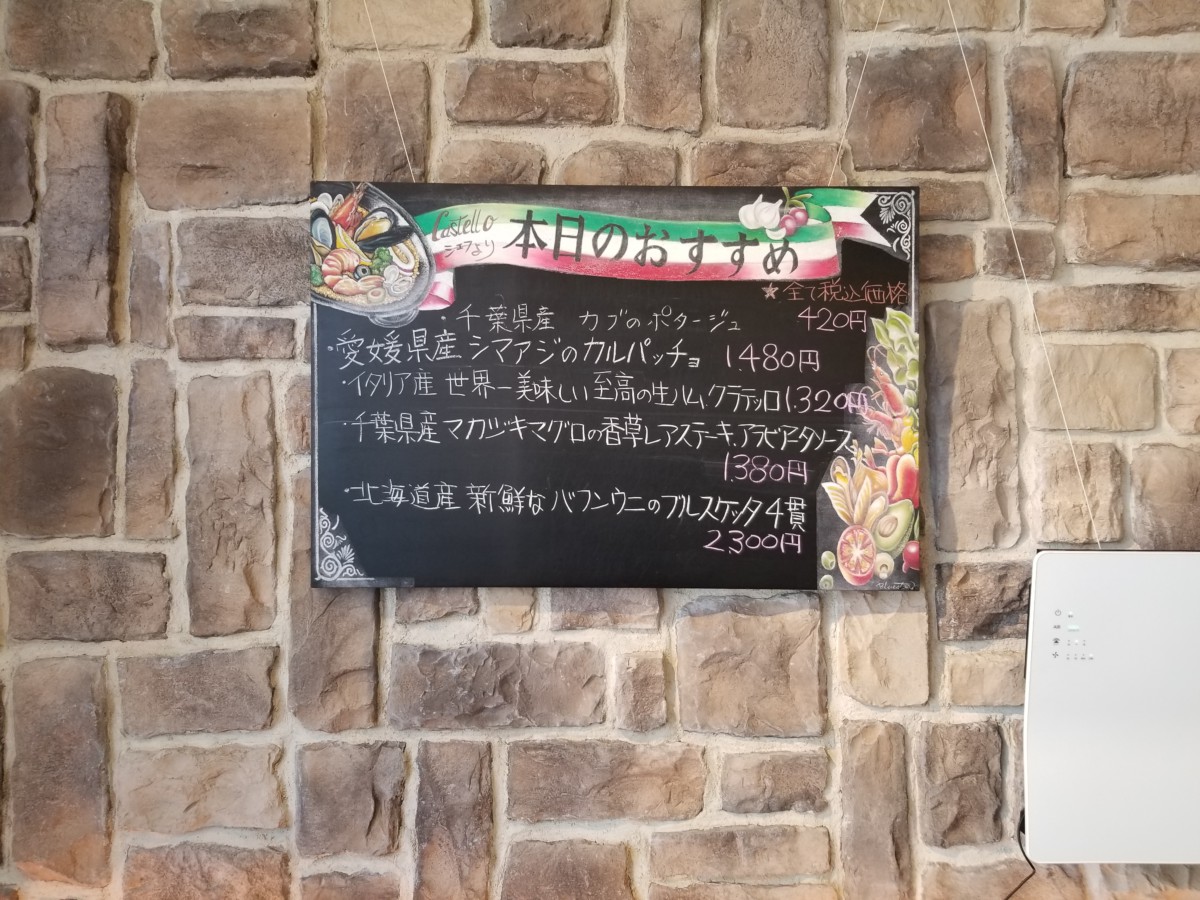 Castello
シェフより
本日のおすすめ
★全て税込価格
・千葉県産 カブのポタージュ 420円
・愛媛県産 シマアジのカルパッチョ 1.480円
・イタリア産 世界一美味しい至高の生ハム、クラテッロ 1.320円
・千葉県産マカジキマグロの香草レアステーキ、アラビアータソース
1.380円
・北海道産 新鮮な バフンウニのブルスケッタ 4貫
2.300円